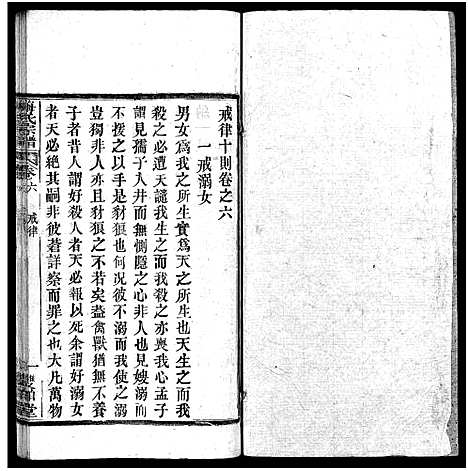 戒律十則卷之六
一戒溺女
男女為我之所生實為天之所生也天生之而我
殺之必遭天譴我生之而我殺之亦喪我心孟子
謂見孺子入井而無惻隱之心非人也見嫂溺而
不援之以手是豺狼也何況彼不溺而我使之溺
豈獨非人亦且豺狼之不若矣蓋禽獸猶無不養
子者昔人謂好殺人者天必報以死余謂好溺女
者天必絕其嗣非彼蒼詳察而罪之也大凡萬物
氏宗譜
卷六
戒律
一
堂